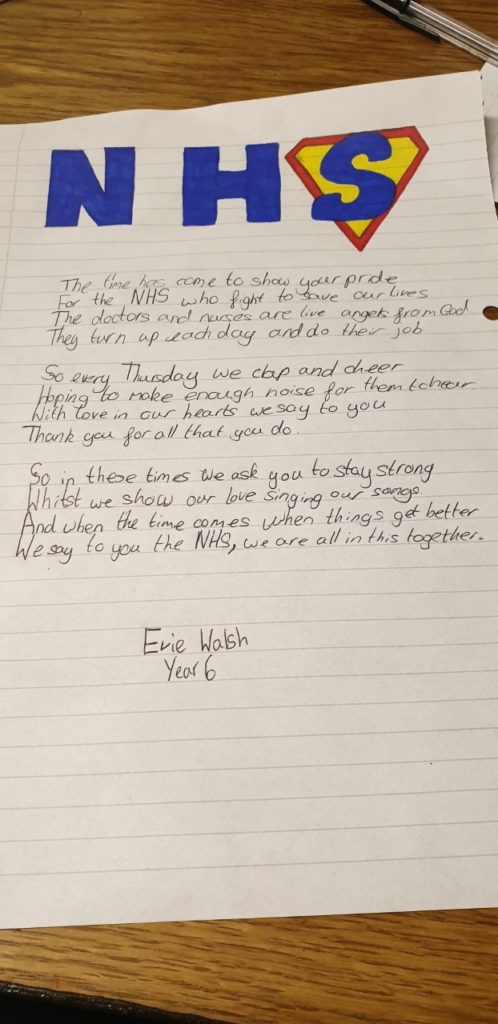 NHS
The time has come to show your pride
For the NHS who fight to save our lives
The doctors and nurses are live angels from God
They turn up each day and do their job.
So every Thursday we clap and cheer
Hoping to make enough noise for them t hear.
With love in our hearts we say to you
Thank you for all that you do.
So in these times we ask you to stay strong
Whilst we show our love singing our songs.
And when the time comes when things get better
We say to you the NHS, we are all in this together.
Evie Walsh
Year 6